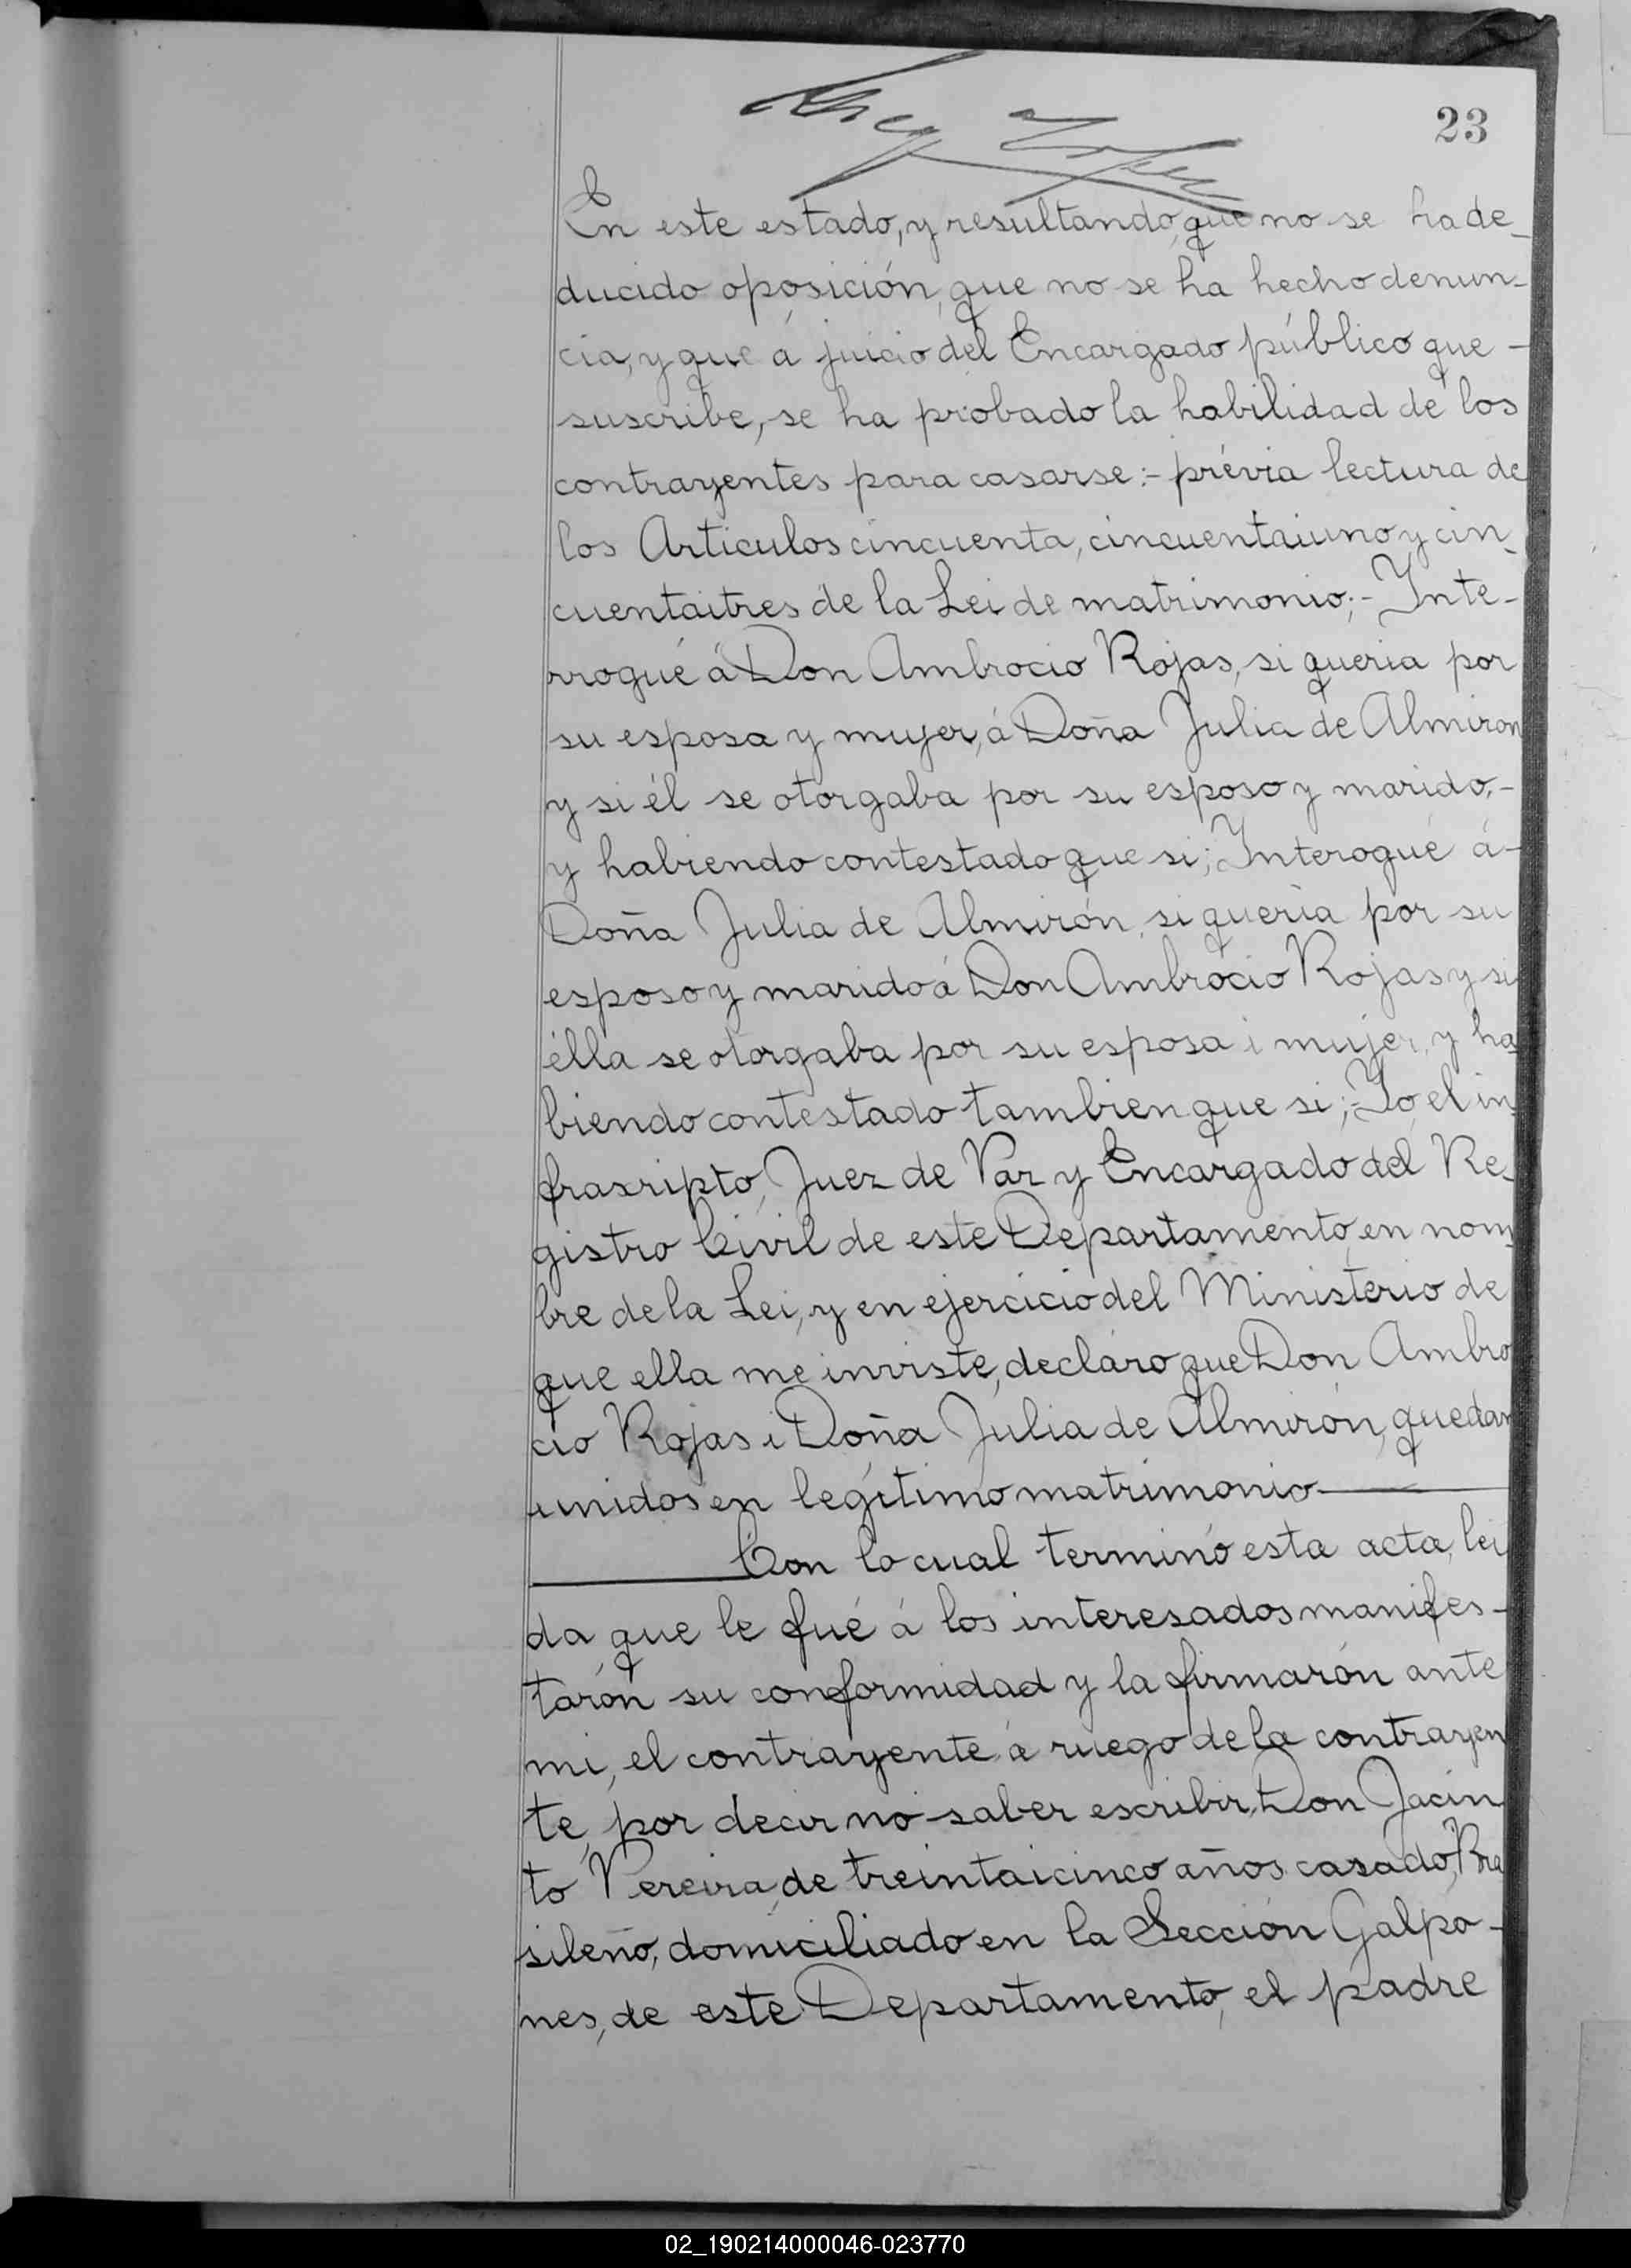 23
En este estado, y resultando, que no se ha de_
ducido oposición, que no se ha hecho denun-
cia, y que á juicio del Encargado público que -
suscribe, se ha probado la habilidad de los
contrayentes para casarse:- prévia lectura de
los Articulos cincuenta, cincuentaiuno y cin_
cuentaitres de la Lei de matrimonio;- Inte-
rrogué á Don Ambrocio Rojas, si queria por
su esposa y mujer, á Doña Julia de Almiron
y si él se otorgaba por su esposo y marido,-
y habiendo contestado que si; Interogué á-
Doña Julia de Almirón, si queria por su
esposo y marido á Don Ambrocio Rojas y si
élla se otorgaba por su esposa i mujer, y ha
biendo contestado tambien que si;- Yo el in_
frascripto, Juez de Paz y Encargado del Re_
gistro Civil de este Departamento, en nom_
bre de la Lei, y en ejercicio del Ministerio de
que ella me inviste, declaro que Don Ambro
cio Rojas i Doña Julia de Almirón, quedan
unidos en legítimo matrimonio
Con lo cual terminó esta acta, lei
da que le fué á los interesados manifes-
tarón su conformidad y la firmarón ante
mi, el contrayente, á ruego de la contrayen
te, por decir no saber escribir, Don Jacin_
to Pereira, de treintaicinco años, casado, Bra
sileño, domiciliado en la Sección Galpo-
nes, de este Departamento, el padre
02_190214000046-023770